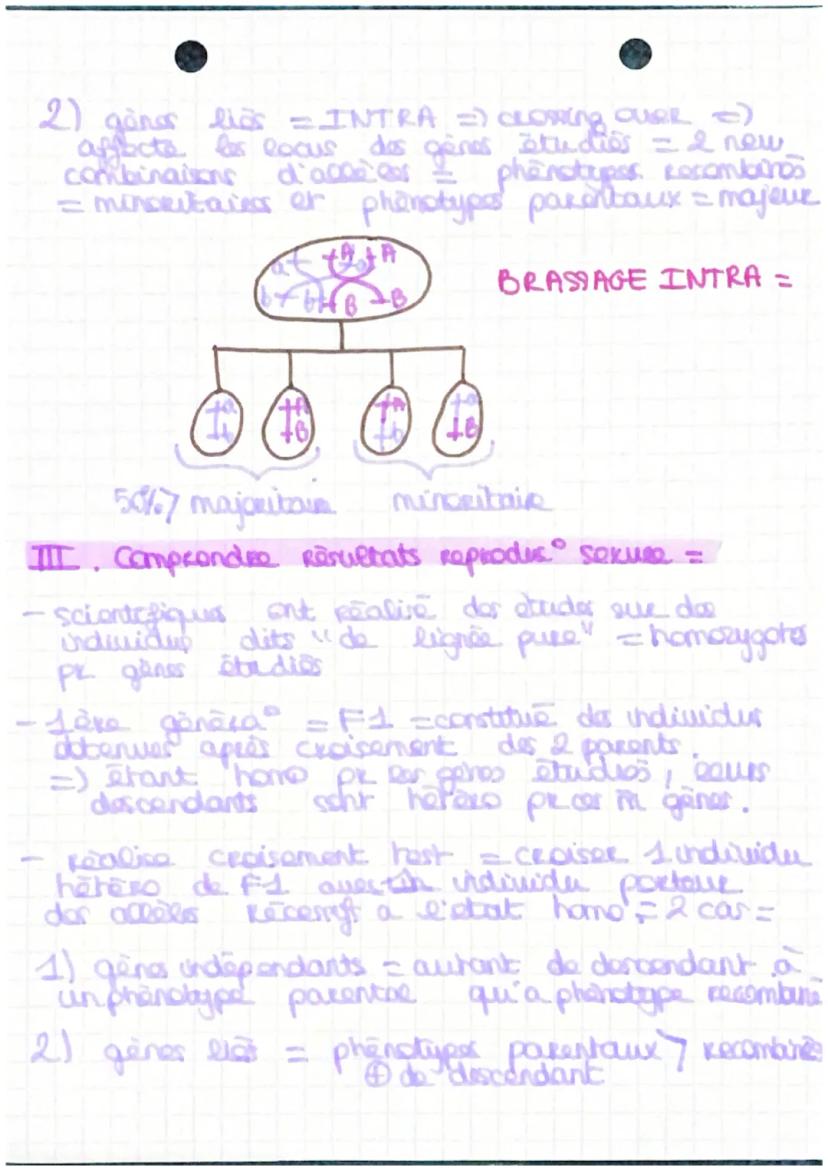 2) gènes liés = INTRA => crossing over =>
affecte les locus des gènes étudiés = 2 new
combinaisons d'allèles = phénotypes recombinés
= minoritaires et phénotypes parentaux = majeur
a A a A
b b B B
BRASSAGE INTRA =
a A A a
b B b B
50%> majoritaire minoritaire
III. Comprendre résultats reproduc° sexuée =
- scientifiques ont réalisé des études sur des
individus dits "de lignée pure" = homozygotes
pr gènes étudiés
- 1ère généra° = F1 = constitué des individus
obtenues après croisement des 2 parents.
=> étant homo pr les gènes étudiés, leurs
descendants sont hétéro pr ces m̂ gènes.
- réalise croisement test = croiser 1 individu
hétéro de F1 avec un individu porteur
des allèles récessifs a l'etat homo = 2 cas =
1) gènes indépendants = autant de descendant à
un phénotype parental qu'a phénotype recombiné
2) gènes liés = phénotypes parentaux > recombinés
⊕ de descendant